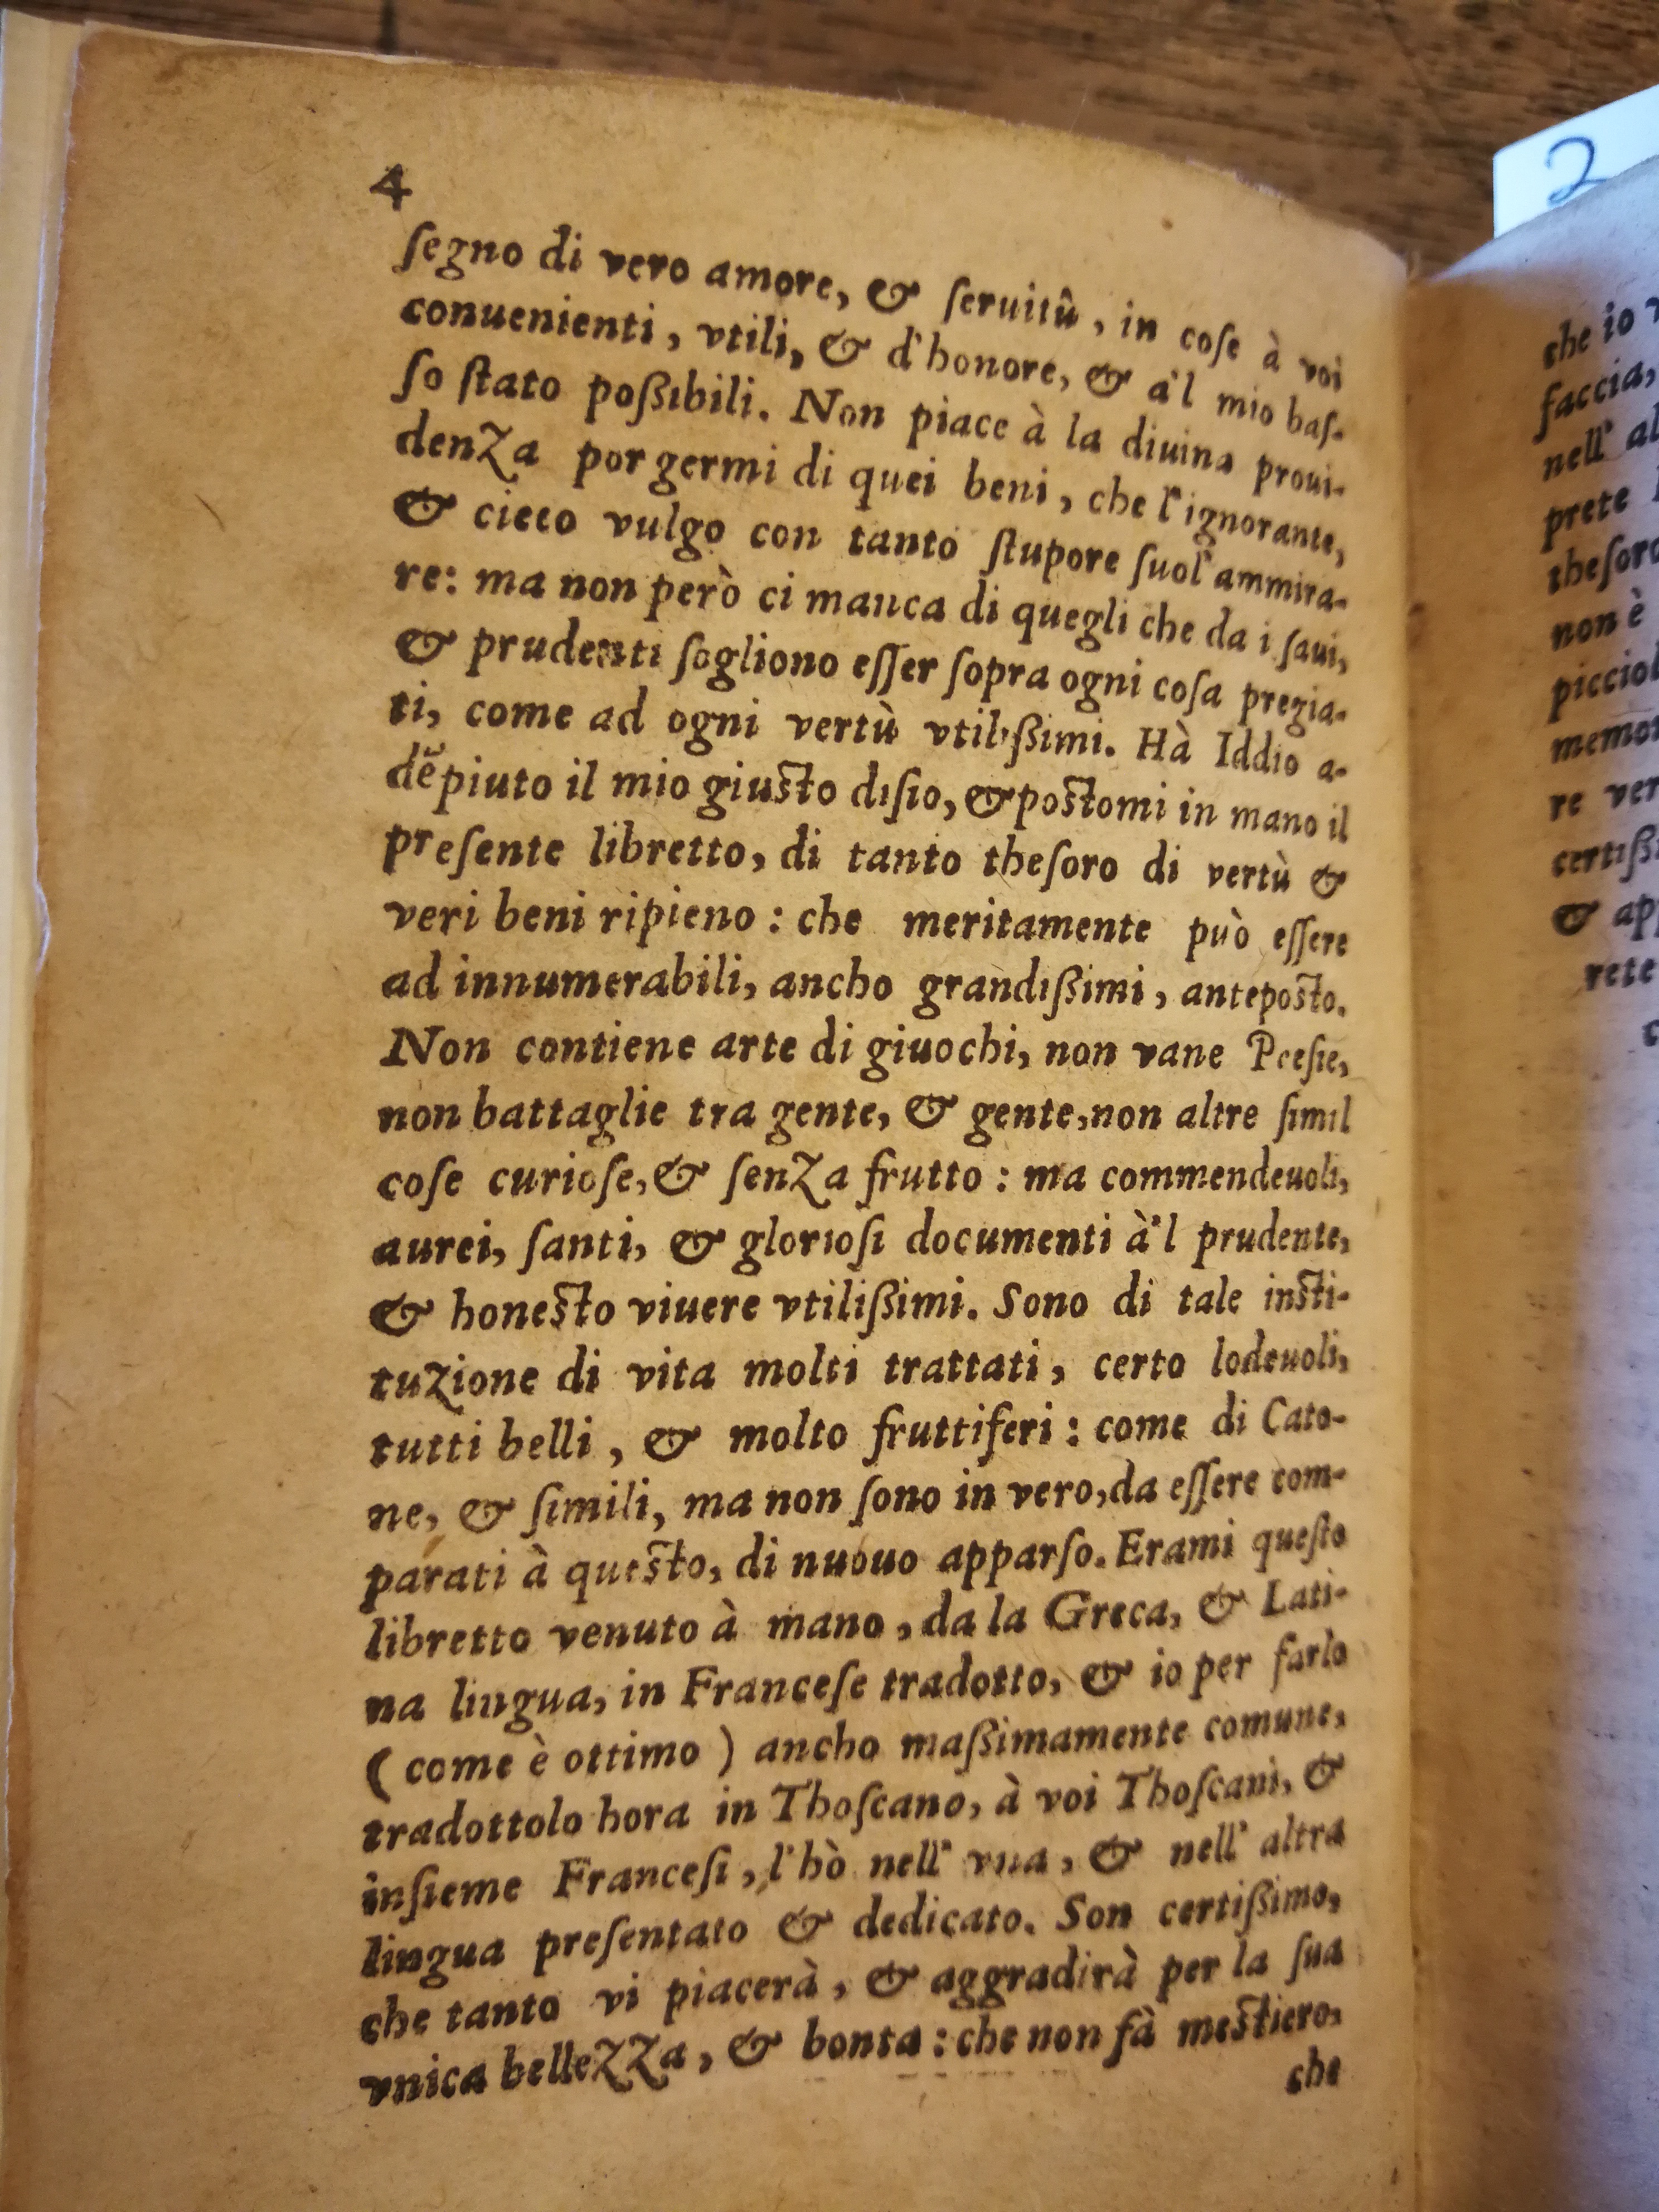 4
ſegno di vero amore, & ſeruitù, in coſe à voi
conuenienti, vtili, & d'honore, & a'l mio baſ-
ſo ſtato poßibili. Non piace à la diuina proui-
denza porgermi di quei beni, che l'ignorante,
& cieco vulgo con tanto ſtupore ſuol' ammira-
re: ma non però ci manca di quegli che da i ſaui,
& prudenti ſogliono eſſer ſopra ogni coſa pregia-
ti, come ad ogni vertù vtilißimi. Hà Iddio a-
dẽpiuto il mio giuſto diſio, & poſtomi in mano il
preſente libretto, di tanto theſoro di vertù &
veri beni ripieno : che meritamente può eſſere
ad innumerabili, ancho grandißimi, antepoſto.
Non contiene arte di giuochi, non vane Poeſie,
non battaglie tra gente, & gente, non altre ſimil
coſe curioſe, & ſenza frutto : ma commendeuoli,
aurei, ſanti, & glorioſi documenti à'l prudente,
& honeſto viuere vtilißimi. Sono di tale inſti-
tuzione di vita molti trattati, certo lodeuoli,
tutti belli, & molto fruttiferi : come di Cato-
ne, & ſimili, ma non ſono in vero, da eſſere com-
parati à queſto, di nuouo apparſo. Erami queſto
libretto venuto à mano, da la Greca, & Lati-
na lingua, in Franceſe tradotto, & io per farlo
( come è ottimo ) ancho maßimamente comune,
tradottolo hora in Thoſcano, à voi Thoſcani, &
inſieme Franceſi, l'hò nell' vna, & nell' altra
lingua preſentato & dedicato. Son certißimo,
che tanto vi piacerà, & aggradirà per la ſua
vnica bellezza, & bonta : che non fà meſtiero,
che
2
che io
faccia,
nell' al
prete
theſoro
non è
picciol
memor
re ver
certißi
& app
rete